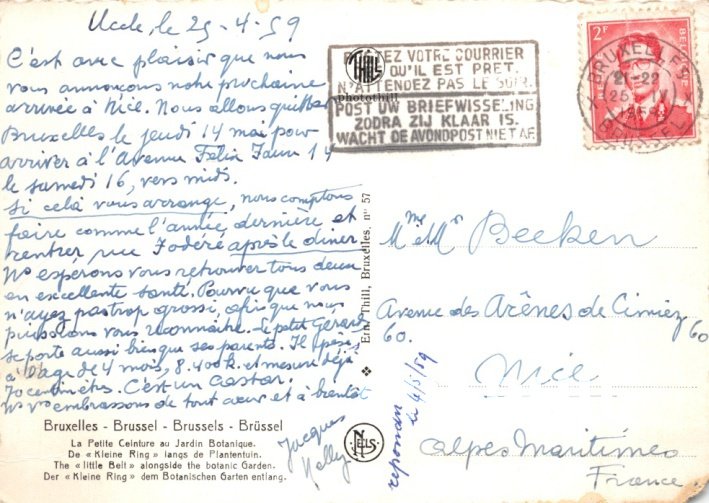 Uccle, le 25-4-59
C'est avec plaisir que nous
vous annonçons notre prochaine
arrivée à Nice. Nous allons quitter
Bruxelles le jeudi 14 mai pour
arriver à l'Avenue Félix Faure 14
le samedi 16, vers midi.
Si celà vous arrange, nous comptons
faire comme l'année dernière et
rentrer rue Foderé après le diner
Ns espérons vous retrouver tous deux
en excellente santé. Pourvu que vous
n'ayez pas trop grossi, afin que nous
puissions vous reconnaitre. Le petit Gérard
se porte aussi bien que ses parents. Il pèse,
à l'âge de 4 mois, 8.400 k. et mesure déjà
70 centimètres. C'est un castar.
Ns vs embrassons de tout cœur et à bientôt
Jacques
Nelly
Bruxelles - Brussel - Brussels - Brüssel
La Petite Ceinture au Jardin Botanique.
De « Kleine Ring » langs de Plantentuin.
The « little Belt » alongside the botanic Garden.
Der « Kleine Ring » dem Botanischen Garten entlang.
Ern. Thill, Bruxelles, n° 57
THILL
photothill
NELS
POSTEZ VOTRE COURRIER
QU'IL EST PRET,
N'ATTENDEZ PAS LE SOIR.
POST UW BRIEFWISSELING
ZODRA ZIJ KLAAR IS.
WACHT DE AVONDPOST NIET AF.
2F
BELGIE
BRUXELLES
21-22
25
1959
BRUSSEL
Mme et Mr Beeken
Avenue des Arènes de Cimiez 60
60.
Nice
Alpes Maritimes
France.
répondu
le 4/5/59